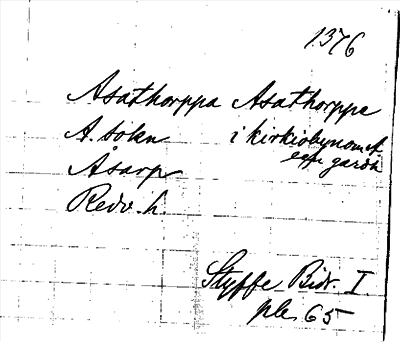 1376
Asathorppa Asathorppe
A. sokn i kirkiobynom et
Åsarp gardh
Redv. h.
Styffe Bidr. I
65